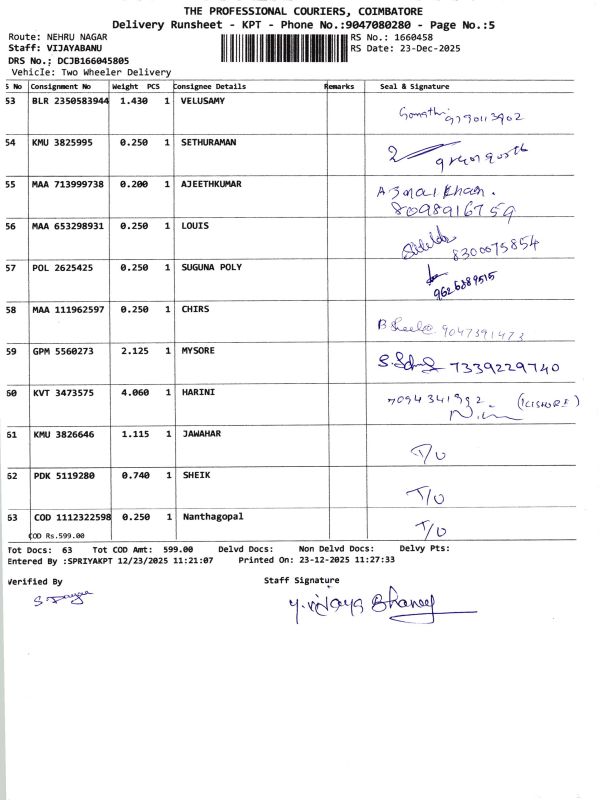 THE PROFESSIONAL COURIERS, COIMBATORE
Delivery Runsheet - KPT - Phone No.:9047080280 - Page No.:5
Route: NEHRU NAGAR RS No.: 1660458
Staff: VIJAYABANU RS Date: 23-Dec-2025
DRS No.: DCJB166045805
Vehicle: Two Wheeler Delivery
S No Consignment No Weight PCS Consignee Details Remarks Seal & Signature
53 BLR 2350583944 1.430 1 VELUSAMY
Gomathi 9790113902
54 KMU 3825995 0.250 1 SETHURAMAN
55 MAA 713999738 0.200 1 AJEETHKUMAR
Ajmal Khan.
8098916759
56 MAA 653298931 0.250 1 LOUIS
8300075854
57 POL 2625425 0.250 1 SUGUNA POLY
9626889515
58 MAA 111962597 0.250 1 CHIRS
B Sheela 9047391473
59 GPM 5560273 2.125 1 MYSORE
7339229740
60 KVT 3473575 4.060 1 HARINI
7094341992 (KISHORE)
61 KMU 3826646 1.115 1 JAWAHAR
T/O
62 PDK 5119280 0.740 1 SHEIK
T/O
63 COD 1112322598 0.250 1 Nanthagopal
T/O
COD Rs.599.00
Tot Docs: 63 Tot COD Amt: 599.00 Delvd Docs: Non Delvd Docs: Delvy Pts:
Entered By :SPRIYAKPT 12/23/2025 11:21:07 Printed On: 23-12-2025 11:27:33
Verified By Staff Signature
Y. Vijaya Bhanu